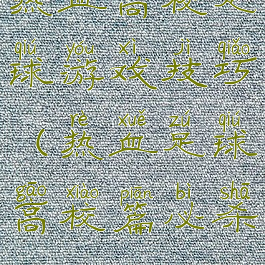 热血高校
qiú yóu xì jì qiǎo
球游戏技巧
rè xuè zú qiú
（热血足球
gāo xiào piān bì shā
高校篇必杀